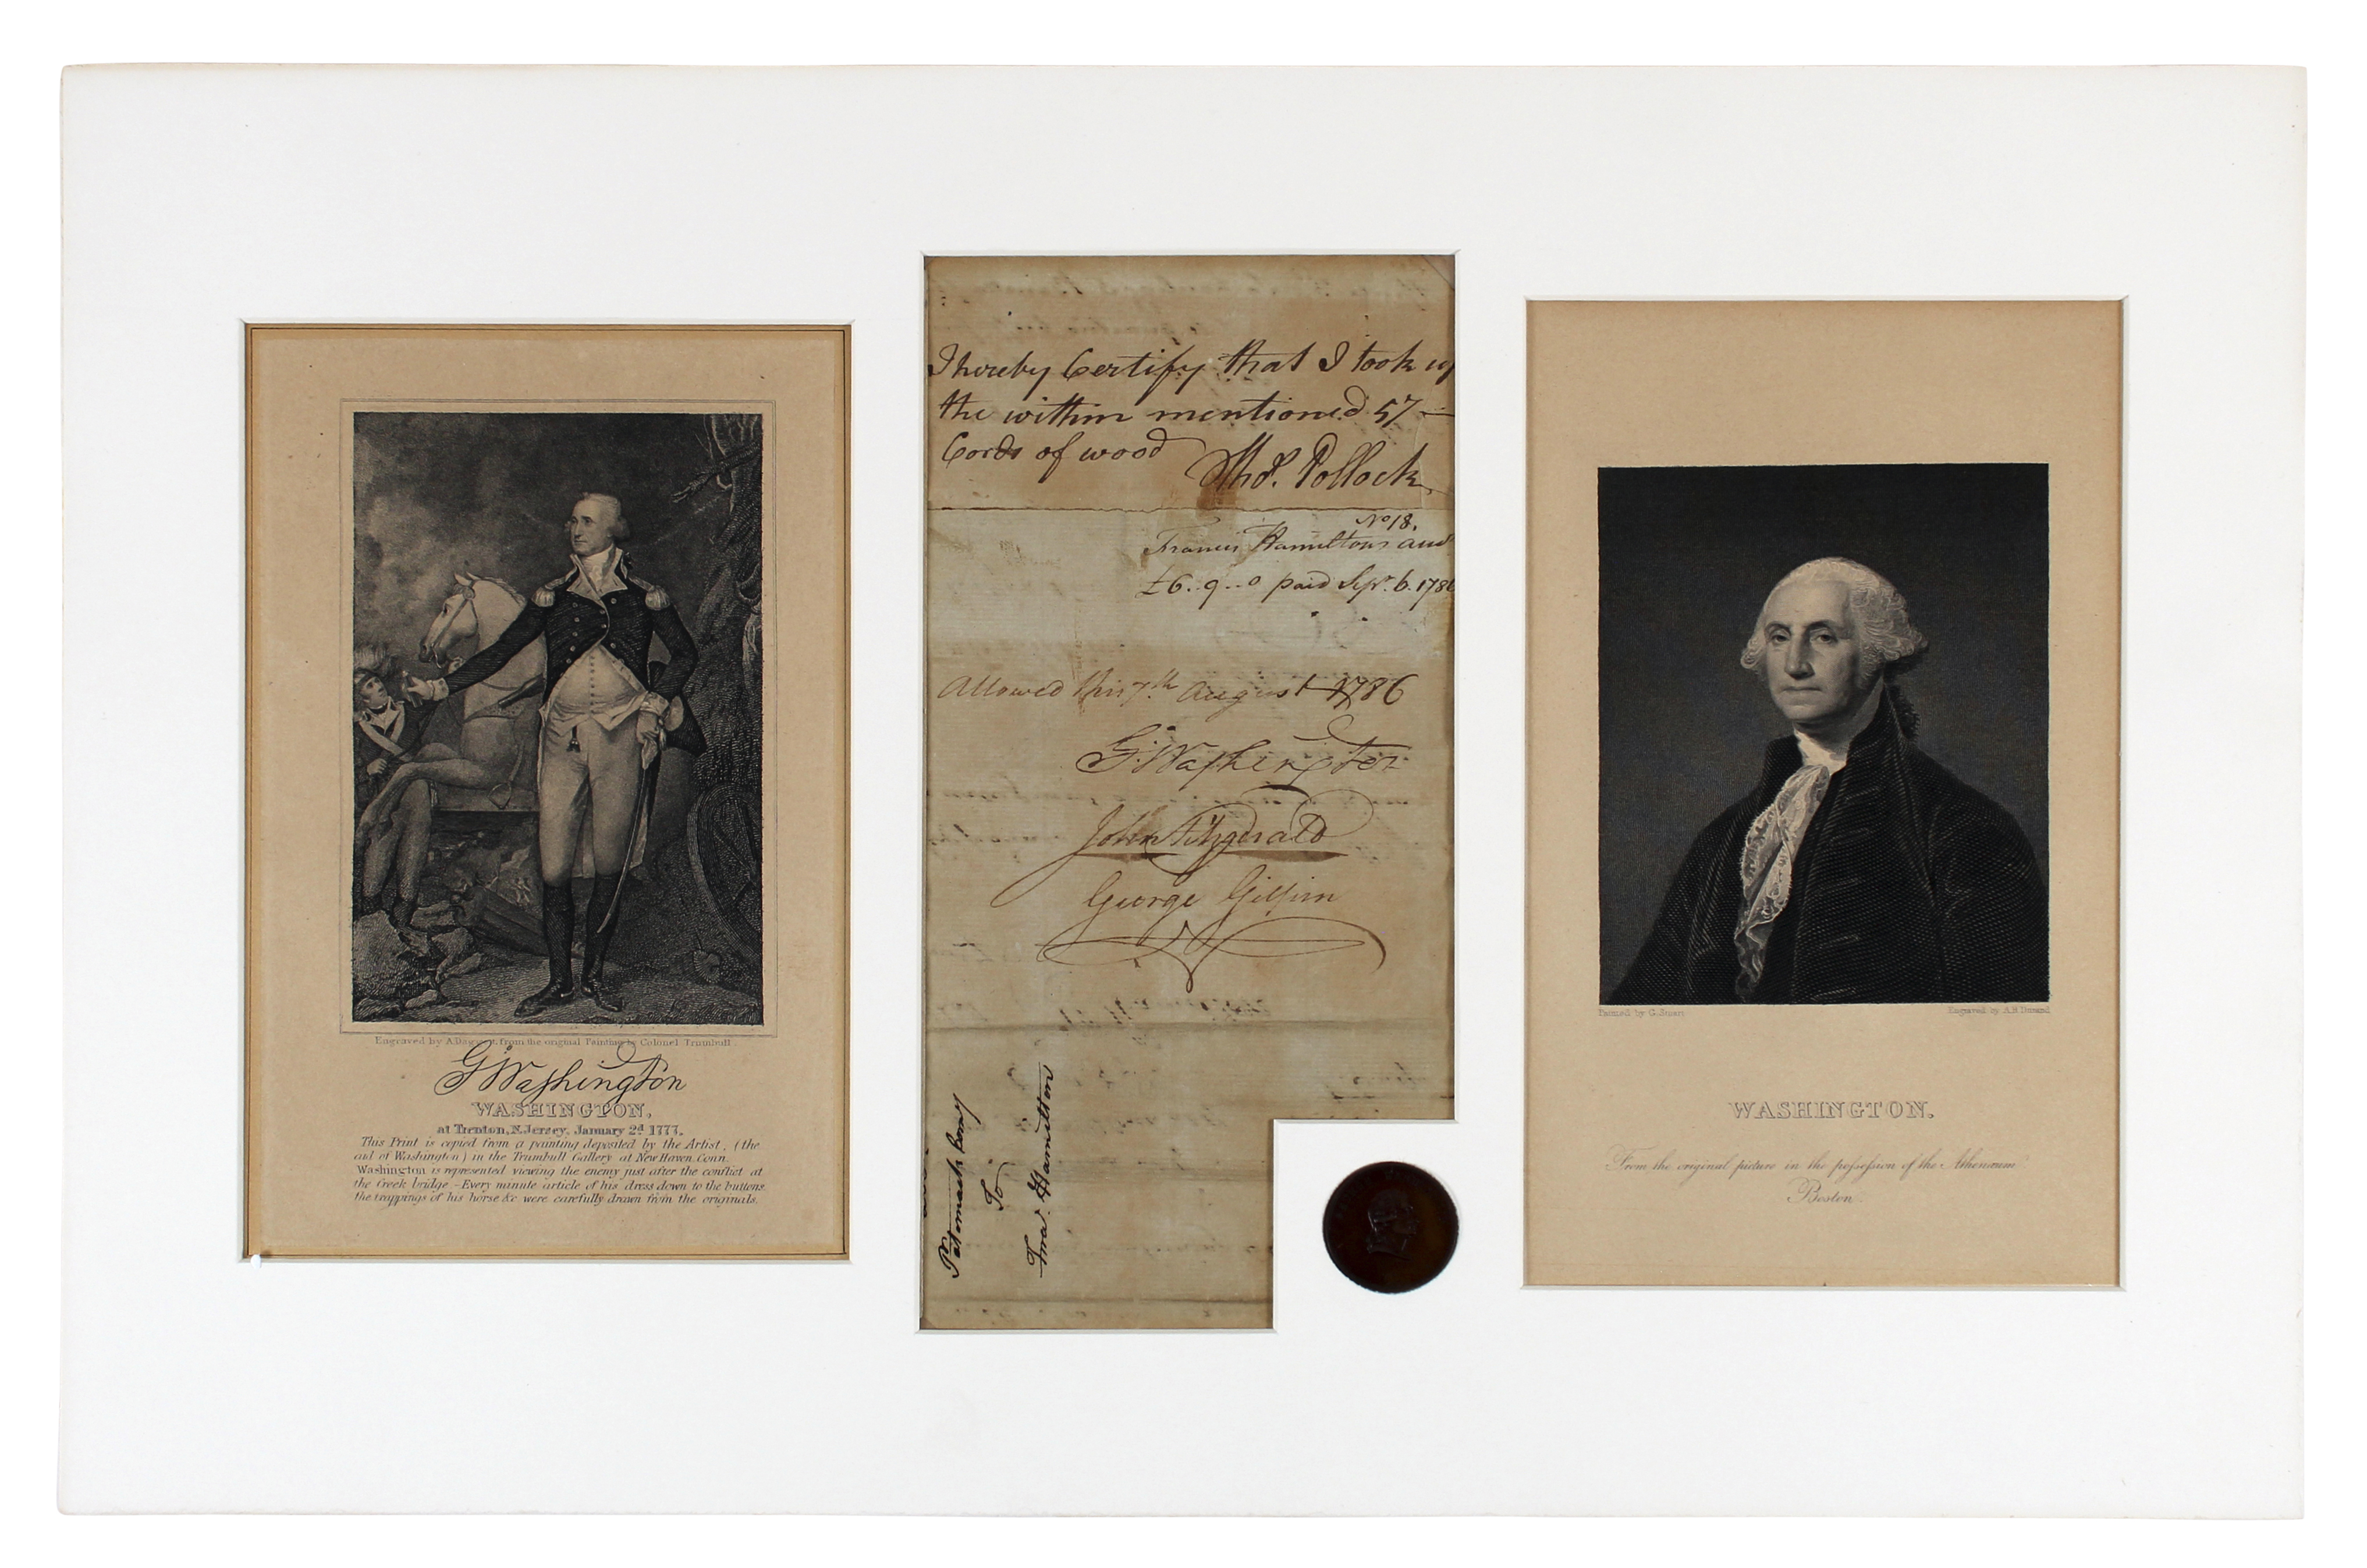 Engraved by A. Daggett, from the original Painting by Colonel Trumbull.
G Washington
WASHINGTON,
at Trenton, N. Jersey, January 2d 1777.
This Print is copied from a painting deposited by the Artist, (the
aid of Washington) in the Trumbull Gallery at New Haven, Conn.
Washington is represented viewing the enemy just after the conflict at
the Creek bridge – Every minute article of his dress down to the buttons,
the trappings of his horse &c were carefully drawn from the originals.
I hereby Certify that I took up
the within mentioned 57 —
Cords of wood
Thos. Pollock
No 18.
Francis Hamiltons
£6..9..0 paid Sepr. 6. 1786
Allowed this 7th August 1786
G Washington
John Fitzgerald
George Gilpin
Potomack Comy
To
Fra. Hamilton
Painted by G. Stuart
Engraved by A.B. Durand
WASHINGTON.
From the original picture in the possession of the Athenæum
Boston.